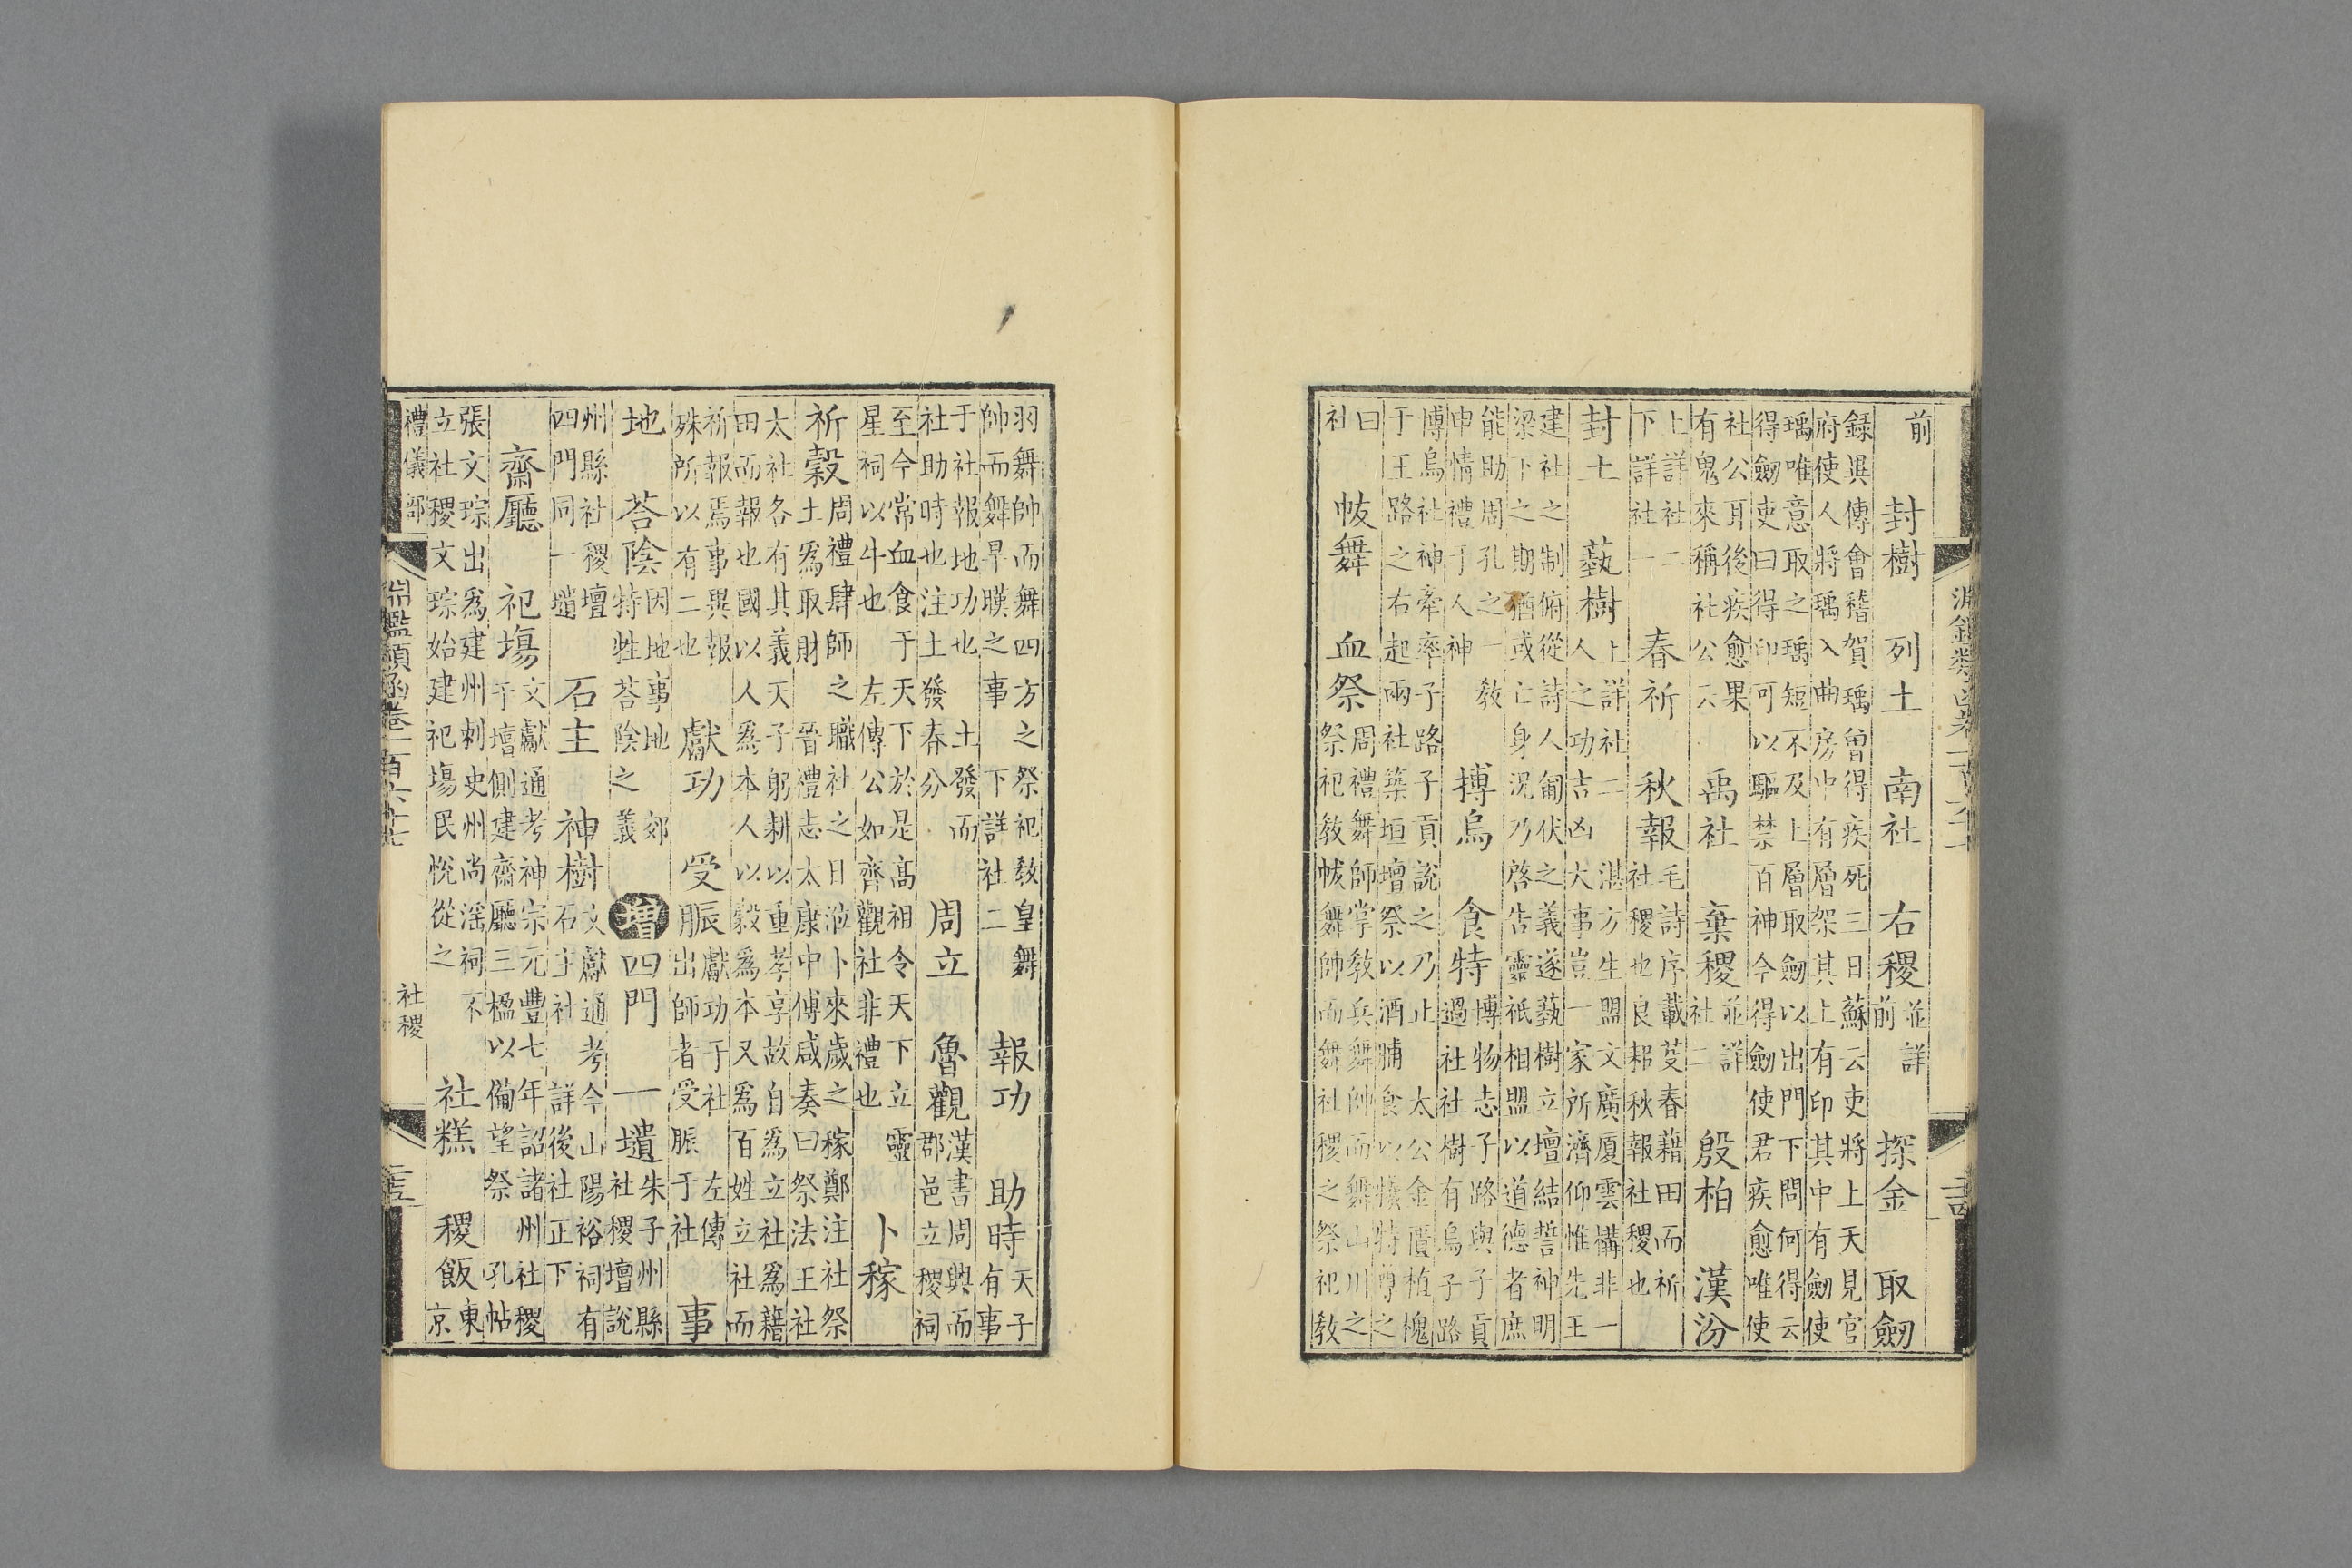 淵鑑類函卷一百六十七
前 封樹 列土 南社 右稷 並詳前 探金 取劒
錄異傳會稽賀瑀曾得疾死三日蘇云吏將上天見官
府使人將瑀入曲房中有層架其上有印其中有劒使
瑀唯意取之瑀短不及上層取劒以出門下問何得云
得劒吏曰得印可以驅禁百神今得劒使君疾愈唯使
社公耳後疾愈果
有鬼來稱社公云
禹社 棄稷 並詳社二 殷柏 漢汾
上詳社二
下詳社一
春祈 秋報
毛詩序載芟春藉田而祈
社稷也良耜秋報社稷也
封土 藝樹
上詳社二 湛方生盟文廣厦雲構非一
人之功吉凶大事豈一家所濟仰惟先王
建社之制俯從詩人匍伏之義遂藝樹立壇結誓神明
梁下之期猶或亡身況乃啓告靈祇相盟以道德者庶
能助周孔之一教
申情禮于人神
搏鳥 食特
博物志子路與子貢
過社社樹有鳥子路
博鳥社神牽率子路子貢說之乃止 太公金匱植愧
于王路之右起兩社築垣壇祭以酒脯食以犧特尊之
曰
社
帗舞 血祭
周禮舞師掌教兵舞帥而舞山川之
祭祀教帗舞帥而舞社稷之祭祀教
羽舞帥而舞四方之祭祀教皇舞
帥而舞旱暵之事 下詳社二
報功 助時
天子
有事
于社報地功也 土發而
社助時也注土發春分
周立 魯觀
漢書周興而
郡邑立稷祠
至今常血食于天下於是高祖令天下立靈
星祠以牛也 左傳公如齊觀社非禮也
卜稼
祈穀
周禮肆師之職社之日涖卜來歲之稼鄭注社祭
土爲取財 晉禮志太康中傅咸奏曰祭法王社
太社各有其義天子躬耕以重孝享故自爲立社爲藉
田而報也國以人爲本人以穀爲本又爲百姓立社而
祈報焉事異報
殊所以有二也
獻功 受脤
獻功于社 左傳
出師者受脤于社
事
地 荅陰
因地事地 郊
特牲荅陰之義
增 四門 一壝
朱子州縣
社稷壇說
州縣社稷壇
四門同一壝
石主 神樹
文獻通考今山陽裕祠有
石主社 詳後社正下
齋廳 祀場
文獻通考神宗元豐七年詔諸州社稷
于壇側建齋廳三楹以備望祭 孔帖
張文琮出爲建州刺史州尚淫祠不
立社稷文琮始建祀場民悅從之
社糕 稷飯
東
京
禮儀部
淵鑑類函卷一百六十七 社稷